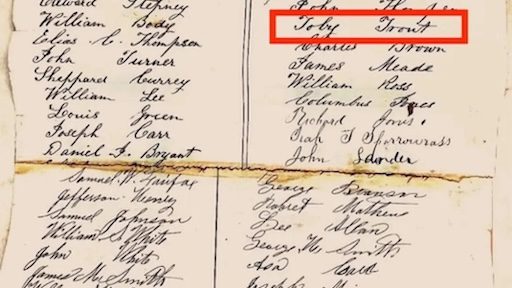 Edward Stepney
William Body
Elias C. Thompson
John Turner
Sheppard Currey
William Lee
Louis Green
Joseph Carr
Daniel F. Bryant
Samuel W. Fairfax
Jefferson Henley
Samuel Johnson
William S. White
John White
James M. Smith
John
Toby Trout
Charles Brown
James Meade
William Ross
Columbus Jones
Richard Jones
Isah T Sparrowrass
John Sander
George Branson
Robert Mathews
Lee Allan
George W. Smith
Asa
Joseph